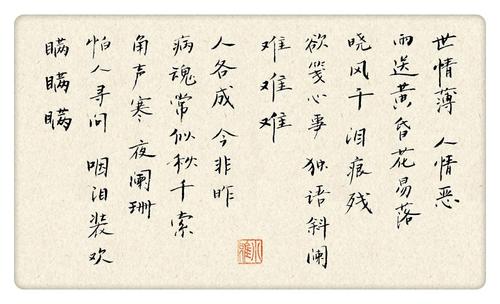 世情薄 人情恶
雨送黄昏花易落
晓风干 泪痕残
欲笺心事 独语斜阑
难难难
人各成 今非昨
病魂常似秋千索
角声寒 夜阑珊
怕人寻问 咽泪装欢
瞒瞒瞒